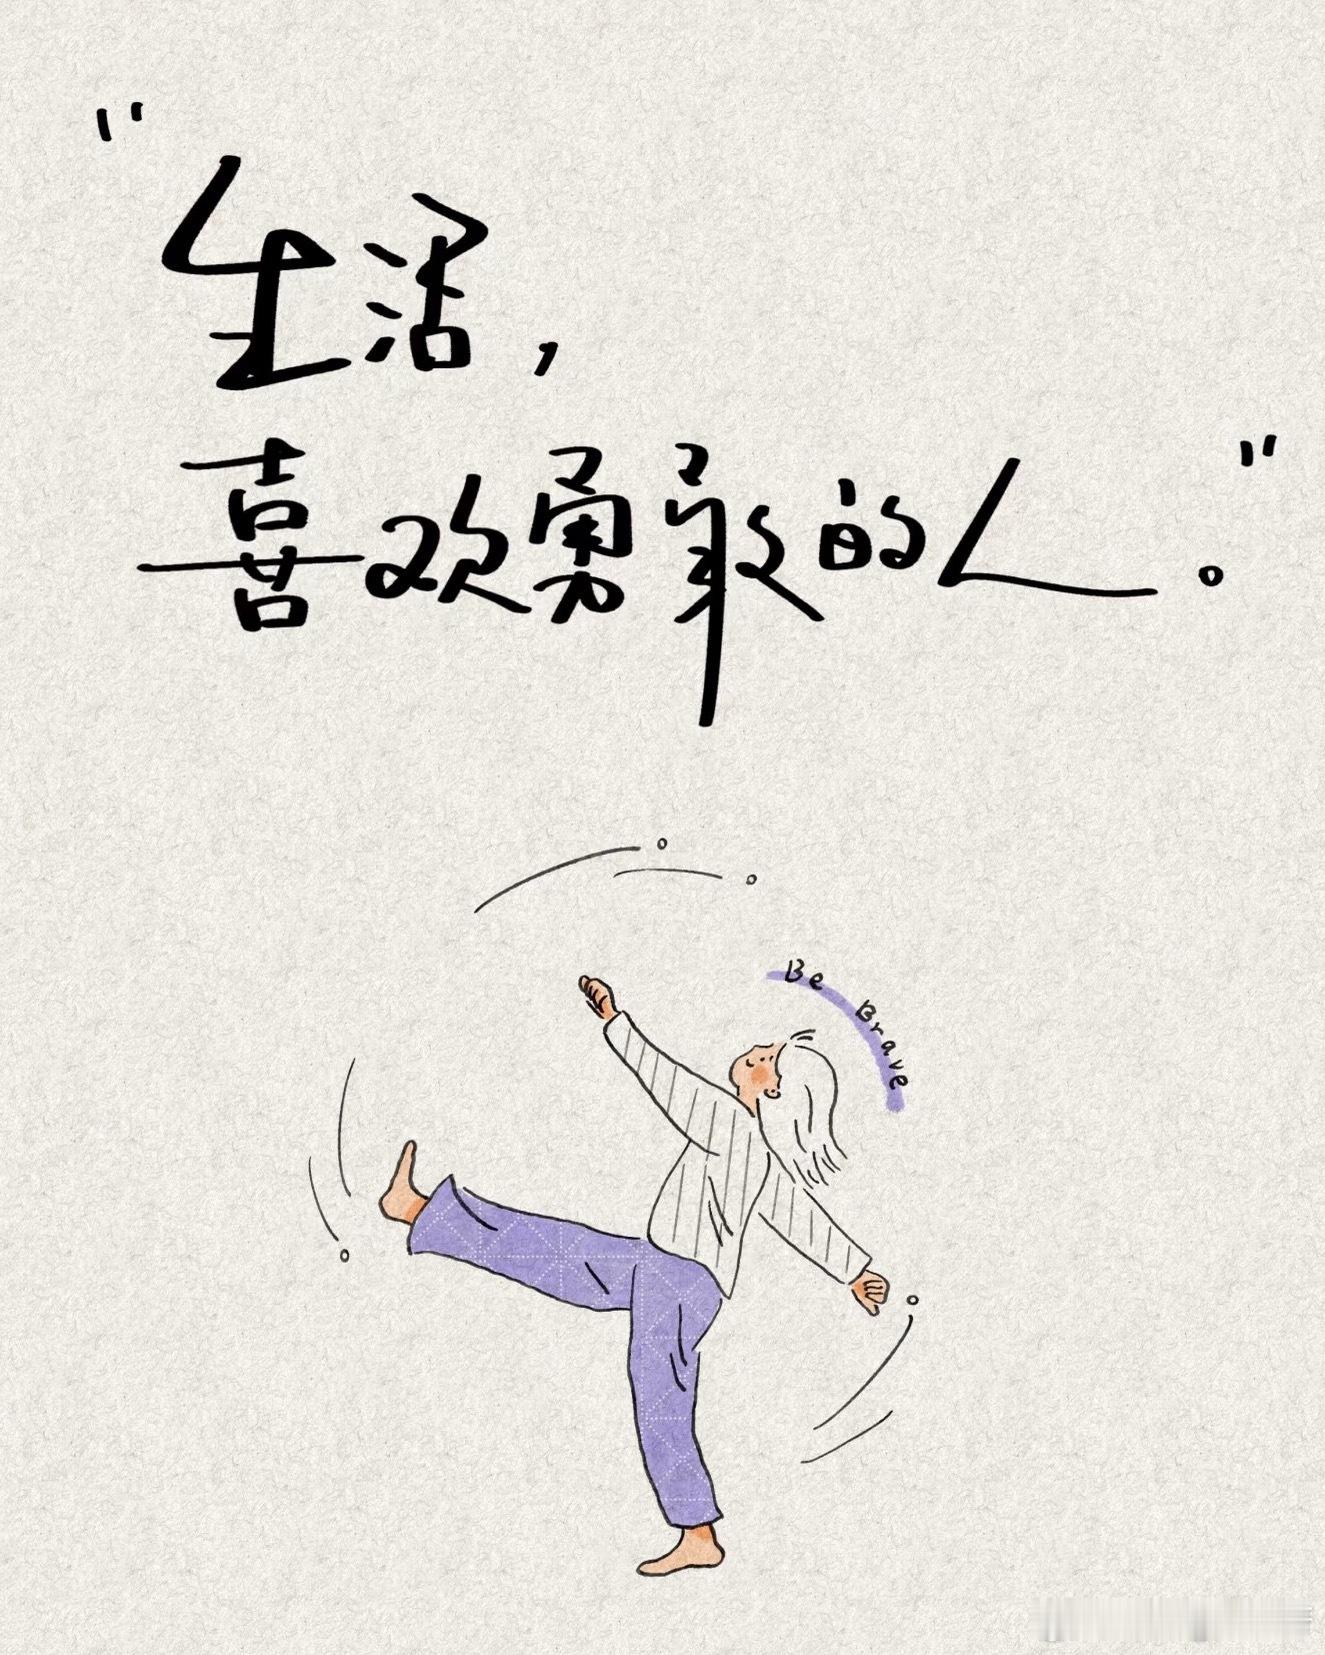 "生活,
喜欢勇敢的人。"
Be Brave